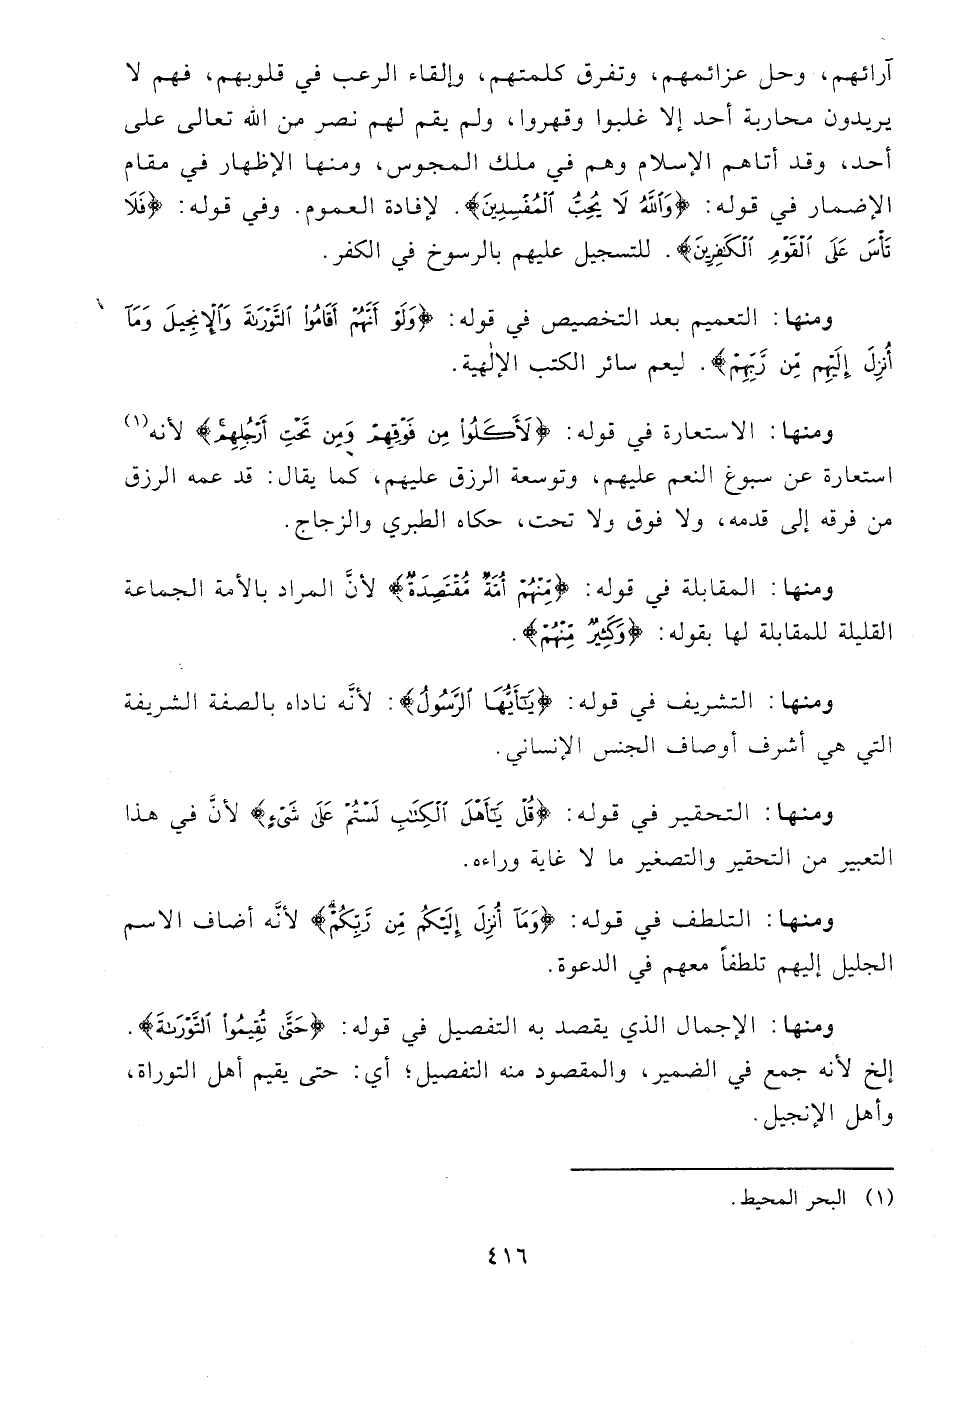 آرائهم، وحل عزائمهم، وتفرق كلمتهم، وإلقاء الرعب في قلوبهم، فهم لا
يريدون محاربة أحد إلا غلبوا وقهروا، ولم يقم لهم نصر من الله تعالى على
أحد، وقد أتاهم الإسلام وهم في ملك المجوس، ومنها الإظهار في مقام
الإضمار في قوله: ﴿وَٱللَّهُ لَا يُحِبُّ ٱلْمُفْسِدِينَ﴾. لإفادة العموم. وفي قوله: ﴿فَلَا
تَأْسَ عَلَى ٱلْقَوْمِ ٱلْكَٰفِرِينَ﴾. للتسجيل عليهم بالرسوخ في الكفر.
ومنها: التعميم بعد التخصيص في قوله: ﴿وَلَوْ أَنَّهُمْ أَقَامُوا۟ ٱلتَّوْرَىٰةَ وَٱلْإِنجِيلَ وَمَآ
أُنزِلَ إِلَيْهِم مِّن رَّبِّهِمْ﴾. ليعم سائر الكتب الإلٰهية.
ومنها: الاستعارة في قوله: ﴿لَأَكَلُوا۟ مِن فَوْقِهِمْ وَمِن تَحْتِ أَرْجُلِهِم﴾ لأنه(١)
استعارة عن سبوغ النعم عليهم، وتوسعة الرزق عليهم، كما يقال: قد عمه الرزق
من فرقه إلى قدمه، ولا فوق ولا تحت، حكاه الطبري والزجاج.
ومنها: المقابلة في قوله: ﴿مِّنْهُمْ أُمَّةٌ مُّقْتَصِدَةٌ﴾ لأنَّ المراد بالأمة الجماعة
القليلة للمقابلة لها بقوله: ﴿وَكَثِيرٌ مِّنْهُمْ﴾.
ومنها: التشريف في قوله: ﴿يَٰٓأَيُّهَا ٱلرَّسُولُ﴾: لأنَّه ناداه بالصفة الشريفة
التي هي أشرف أوصاف الجنس الإنساني.
ومنها: التحقير في قوله: ﴿قُلْ يَٰٓأَهْلَ ٱلْكِتَٰبِ لَسْتُمْ عَلَىٰ شَىْءٍ﴾ لأنَّ في هذا
التعبير من التحقير والتصغير ما لا غاية وراءه.
ومنها: التلطف في قوله: ﴿وَمَآ أُنزِلَ إِلَيْكُم مِّن رَّبِّكُمْ﴾ لأنَّه أضاف الاسم
الجليل إليهم تلطفاً معهم في الدعوة.
ومنها: الإجمال الذي يقصد به التفصيل في قوله: ﴿حَتَّىٰ تُقِيمُوا۟ ٱلتَّوْرَىٰةَ﴾.
إلخ لأنه جمع في الضمير، والمقصود منه التفصيل؛ أي: حتى يقيم أهل التوراة،
وأهل الإنجيل.
(١) البحر المحيط.
٤١٦